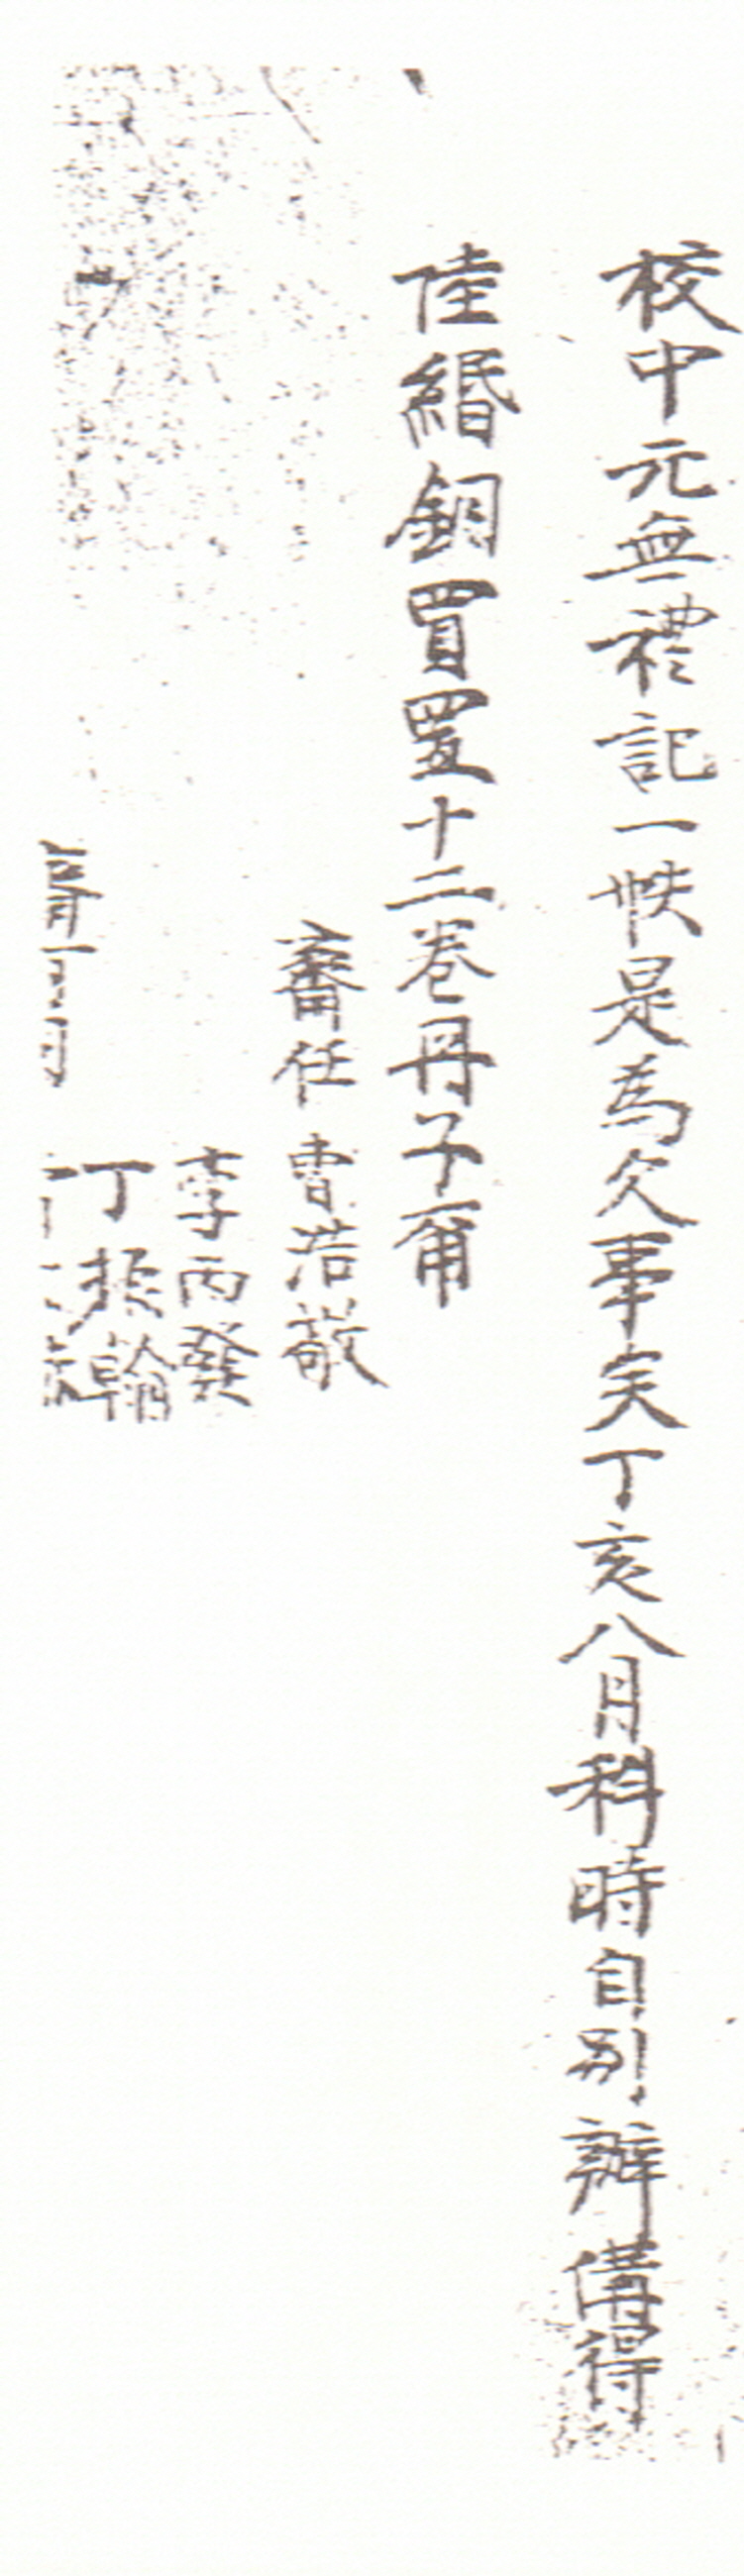 校中元無禮記一帙是為欠事矣丁亥八月科時自別辦備得
陸緡銅買置十二卷冊子爾
齋任 曺浩敬
李丙發
丁振翰